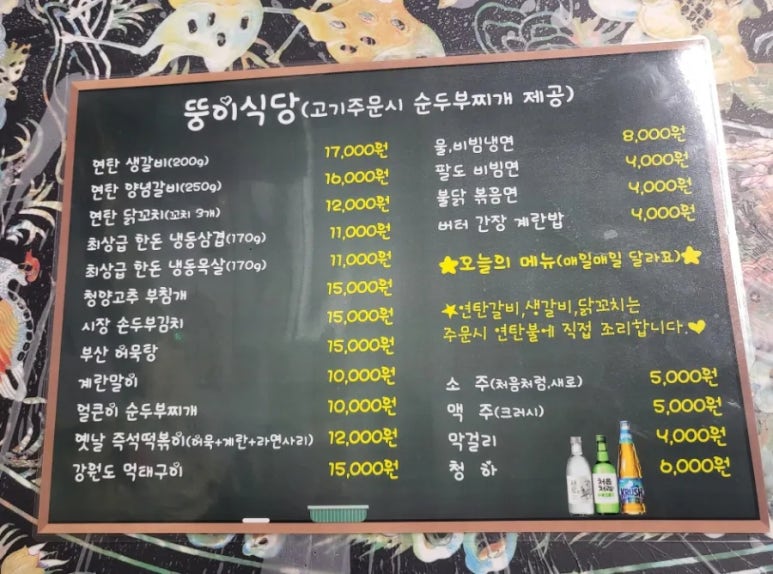 뚱이식당(고기주문시 순두부찌개 제공)
연탄 생갈비(200g) 17,000원
연탄 양념갈비(250g) 16,000원
연탄 닭꼬치(꼬치 3개) 12,000원
최상급 한돈 냉동삼겹(170g) 11,000원
최상급 한돈 냉동목살(170g) 11,000원
청양고추 부침개 15,000원
시장 순두부김치 15,000원
부산 어묵탕 15,000원
계란말이 10,000원
얼큰이 순두부찌개 10,000원
옛날 즉석떡볶이(어묵+계란+라면사리) 12,000원
강원도 먹태구이 15,000원
물,비빔냉면 8,000원
팔도 비빔면 4,000원
불닭 볶음면 4,000원
버터 간장 계란밥 4,000원
★오늘의 메뉴(매일매일 달라요)★
★연탄갈비,생갈비,닭꼬치는
주문시 연탄불에 직접 조리합니다.♥
소 주(처음처럼,새로) 5,000원
맥 주(크러시) 5,000원
막걸리 4,000원
청 하 6,000원
처음
처럼
KRUSH